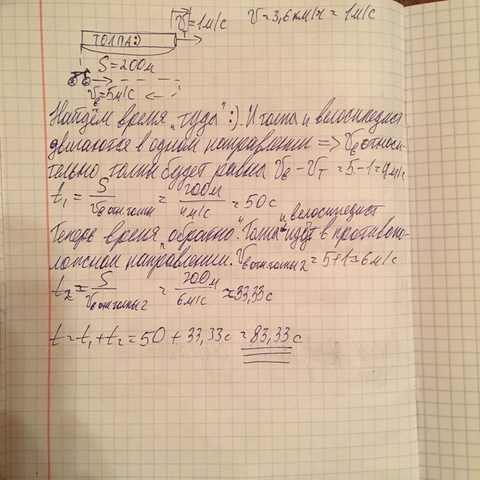 v=1м/с v=3,6км/ч=1м/с
ТОЛПА:)
S=200м
vв=5м/с
Найдём время "туда" :). И толпа и велосипедист
двигаются в одном направлении => vв относи-
тельно толпы будет равна vв-vт=5-1=4м/с
t₁=S/vв отн.толпы=200м/4м/с=50с
Теперь время "обратно". Толпа и велосипедист идут в противопо-
ложном направлении. vв отн толпы 2=5+1=6м/с
t₂=S/vв отн толпы 2=200м/6м/с≈33,33с
t=t₁+t₂=50+33,33с=83,33с